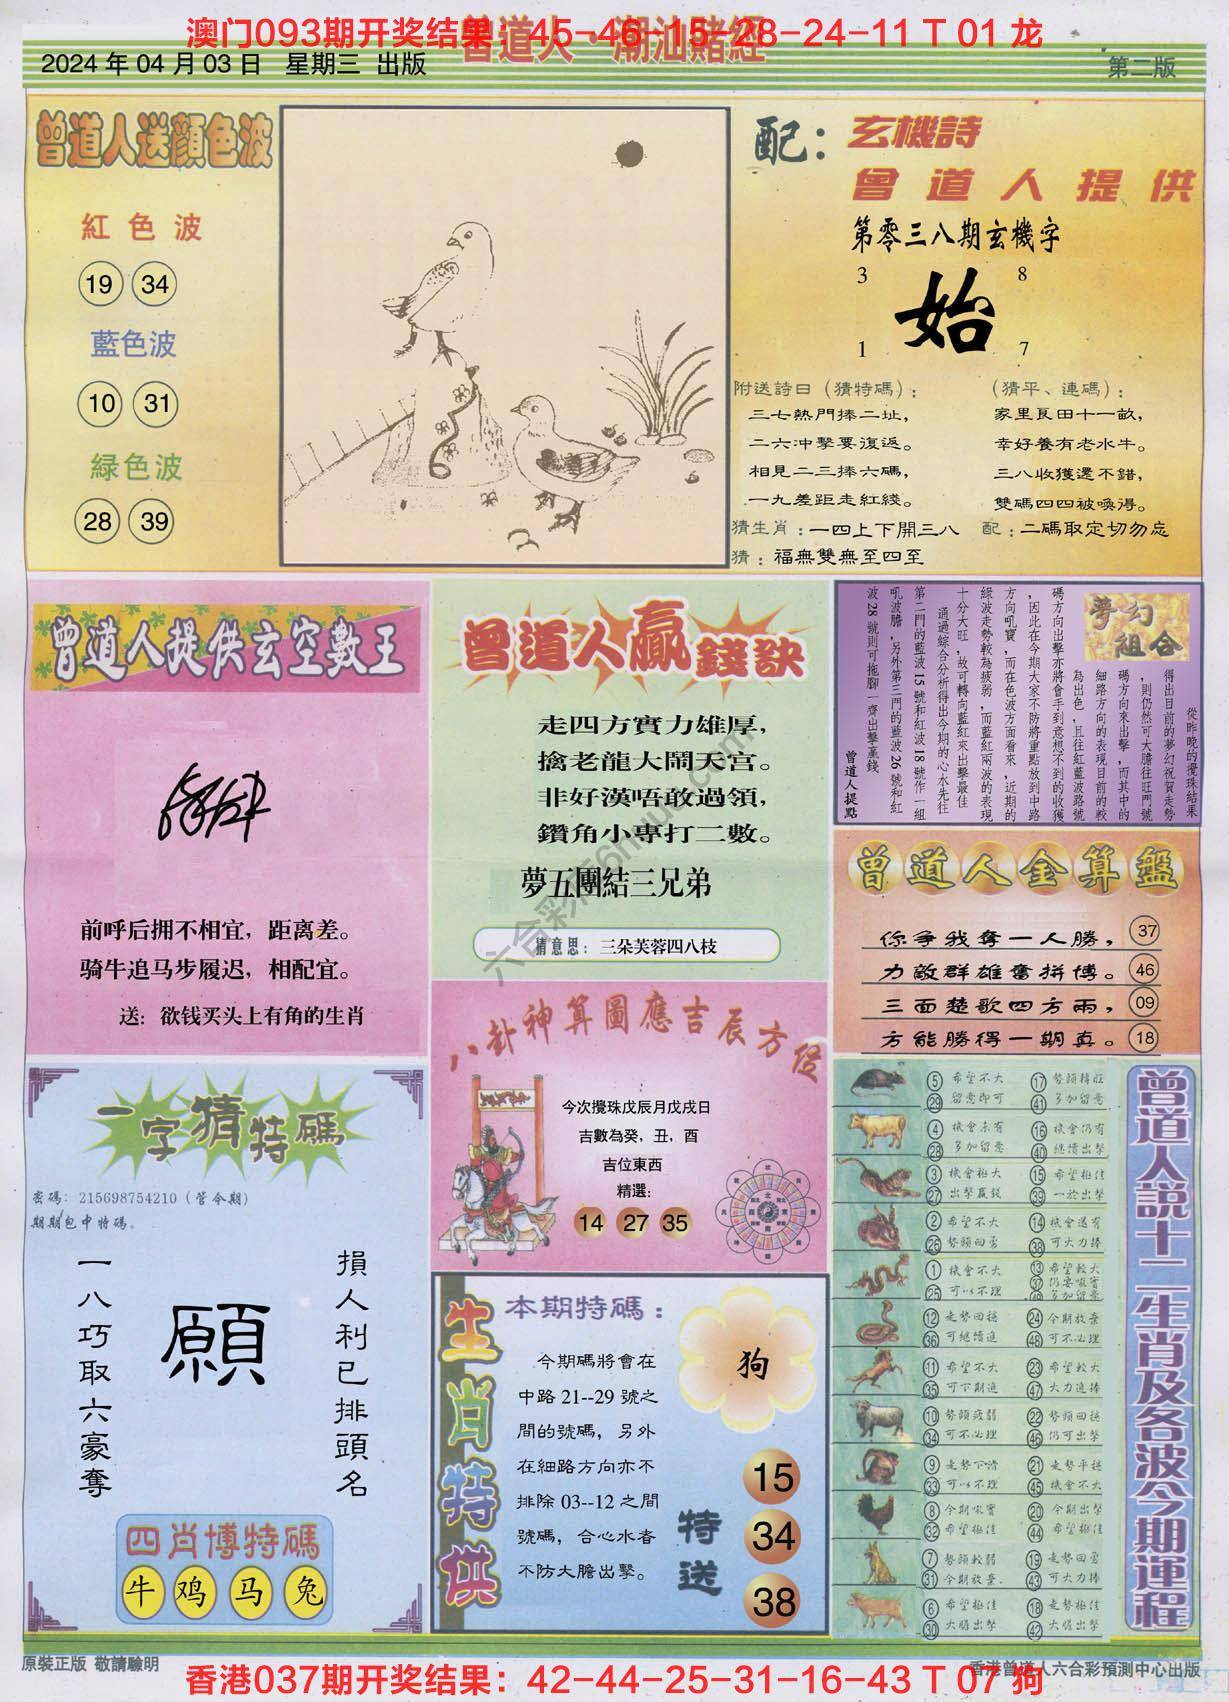 澳门093期开奖结果：45-46-15-28-24-11 T 01 龙
曾道人·潮汕賭經
2024 年 04 月 03 日 星期三 出版
第二版
曾道人送顏色波
紅色波
19 34
藍色波
10 31
緑色波
28 39
配：
玄機詩
曾道人提供
第零三八期玄機字
3 8
始
1 7
附送詩日（猜特碼）：
三七熱門捧二址，
二六冲擊要復返。
相見二三捧六碼，
一九差距走紅綫。
（猜平、連碼）：
家里良田十一畝，
幸好養有老水牛。
三八收獲還不錯，
雙碼四四被喚得。
猜生肖：一四上下開三八 配：二碼取定切勿忘
猜：福無雙無至四至
曾道人提供玄空數王
前呼后拥不相宜，距离差。
骑牛追马步履迟，相配宜。
送：欲钱买头上有角的生肖
曾道人贏錢訣
走四方實力雄厚，
擒老龍大鬧天宫。
非好漢唔敢過領，
鑽角小專打二數。
夢五團結三兄弟
猜意思：三朵芙蓉四八枝
夢幻組合
從昨晚的攪珠結果
得出目前的夢幻祝賀走勢
，則仍然可大膽往旺門號
碼方向來出擊，而其中的
細路方向的表現目前的較
為出色，且往紅藍波路號
碼方向出擊亦將會手到意想不到的收獲
，因此在今期大家不防將重點放到中路
方向吼寶，而在色波方面看來，近期的
綠波走勢較為疲弱，而藍紅兩波的表現
十分大旺，故可轉向藍紅來出擊最佳
通過綜合分析得出今期的心水先往
第二門的藍波15號和紅波18號作一組
吼波膽，另外第三門的藍波26號和紅
波28號則可拖腳一齊出擊赢錢
曾道人提點
曾道人金算盤
你争我奪一人勝， 37
力敵群雄奮拼博。 46
三面楚歌四方雨， 09
方能勝得一期真。 18
八卦神算圖應吉辰方位
今次攪珠戊辰月戊戌日
吉數為癸，丑，酉
吉位東西
精選：
14 27 35
一字猜特碼
密碼：215698754210（管令期）
期期包中特碼。
損人利已排頭名
願
一八巧取六豪奪
四肖博特碼
牛 鸡 马 兔
生肖特供
本期特碼：
狗
今期碼將會在
中路 21--29 號之
間的號碼，另外
在細路方向亦不
排除 03--12 之間
號碼，合心水者
不防大膽出擊。
特送
15
34
38
曾道人説十二生肖及各波今期運程
5 希望不大 17 勢頭轉旺
29 留意即可 41 多加留意
4 機會未有 16 機會仍有
28 多加留意 40 継續出擊
3 機會極大 15 希望極佳
27 出擊贏錢 39 一於出擊
2 希望不大 14 機會還有
26 勢頭回勇 38 可大力捧
1 機會不大 13 希望較大
25 可以不理 37 仍要吼寶
49 多加留意
12 走勢回穩 24 今期放棄
36 可継續追 48 可不必理
11 希望不大 23 希望較大
35 可下期追 47 大力追捧
10 勢頭疲弱 22 勢頭回穩
34 可不必理 46 仍可出擊
9 走勢下滑 21 走勢平穩
33 可以不理 45 機會不大
8 今期吼寶 20 今期出擊
32 希望極佳 44 希望極佳
7 勢頭較弱 19 走勢回勇
31 今期放棄. 43 可大力捧
6 希望極佳 18 走勢極佳
30 大膽出擊 42 大膽出擊
原裝正版 敬請驗明
香港曾道人六合彩預測中心出版
香港037期开奖结果：42-44-25-31-16-43 T 07 狗